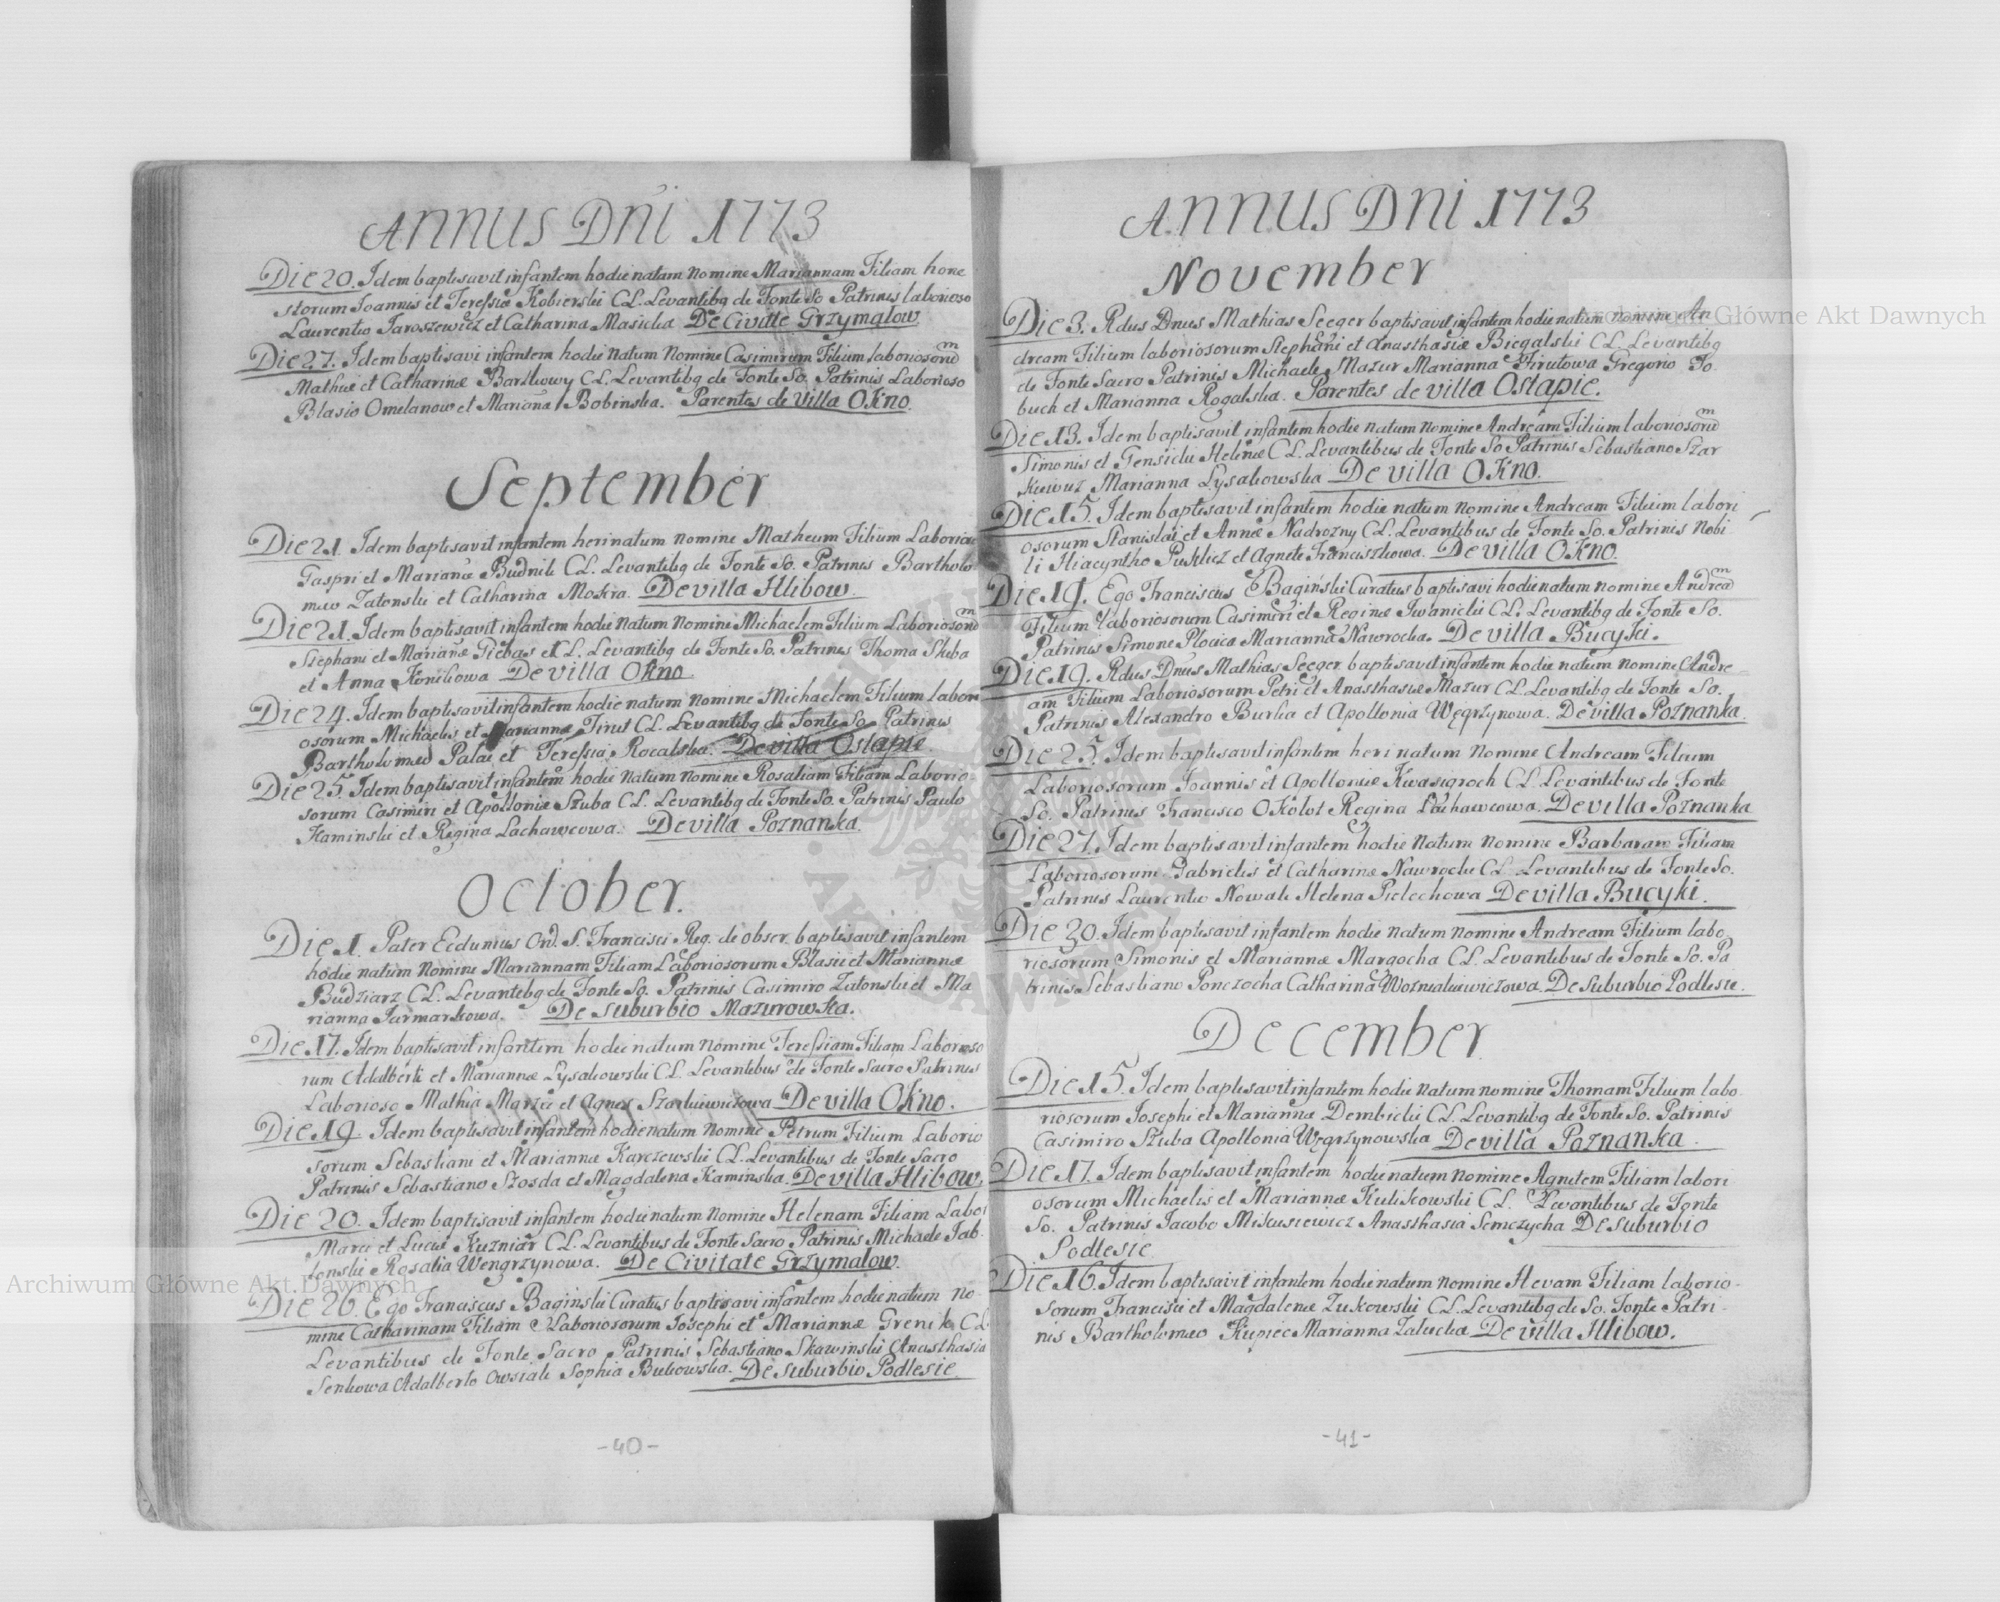 ANNUS DNI 1773
Die 20. Idem baptisavit infantem hodie natam nomine Mariannam Filiam hone
storum Joannis et Teressiæ Kobierski CL. Levantibq de Fonte So Patrinis laborioso
Laurentio Jaroszewicz et Catharina Masicka De Civitte Grzymalow
Die 27. Idem baptisavi infantem hodie natum Nomine Casimirum Filium laboriosorum
Mathiæ et Catharinæ Bartkowy CL. Levantibq de Fonte So. Patrinis Laborioso
Blasio Omelanow et Mariana Bobinska. Parentes de Villa OKno.
September
Die 21. Idem baptisavit infantem heri natum nomine Matheum Filium Laborios
Gaspri et Marianæ Budnik CL. Levantibq de Fonte So. Patrinis Bartholo
meo Zatonski et Catharina Mokra. De villa Hlibow.
Die 21. Idem baptisavit infantem hodie natum nomine Michaelem Filium Laboriosorum
Stephani et Marianæ Giebas CL. Levantibq de Fonte So. Patrinis Thoma Skuba
et Anna Konikowa De villa OKno
Die 24. Idem baptisavit infantem hodie natum nomine Michaelem Filium labori
osorum Michaelis et Mariannæ Firut CL. Levantibq de Fonte So Patrinis
Bartholomeo Palai et Teressia Rocalska. De villa Ostapie.
Die 25. Idem baptisavit infantem hodie natum nomine Rosaliam Filiam Laborio-
sorum Casimiri et Apolloniæ Skuba CL. Levantibq de Fonte So. Patrinis Paulo
Kaminski et Regina Lachawcowa. De villa Poznanka.
October.
Die 1. Pater Ecdunius Ord. S. Francisci Reg. de obser. baptisavit infantem
hodie natum nomine Mariannam Filiam Laboriosorum Blasii et Mariannæ
Budziarz CL. Levantibq de Fonte So. Patrinis Casimiro Zatonski et Ma
rianna Jarmarkowa. De Suburbio Mazurowka.
Die 17. Idem baptisavit infantem hodie natum nomine Teressiam Filiam Laborioso
rum Adalberti et Mariannæ Lysakowski CL. Levantibus de Fonte Sacro Patrinis
Laborioso Mathia Marzec et Agnes Szarkiewiczowa De villa OKno.
Die 19. Idem baptisavit infantem hodie natum nomine Petrum Filium Laborio
sorum Sebastiani et Mariannæ Karczewski CL. Levantibus de Fonte Sacro
Patrinis Sebastiano Szosda et Magdalena Kaminska. De villa Hlibow.
Die 20. Idem baptisavit infantem hodie natum nomine Helenam Filiam Labor
Marci et Luciæ Kuzniar CL. Levantibus de Fonte Sacro Patrinis Michaele Jab-
lonski Rosalia Wengrzynowa. De Civitate Grzymalow.
Die 26. Ego Franciscus Baginski Curatus baptisavi infantem hodie natum no-
mine Catharinam Filiam Laboriosorum Josephi et Mariannæ Grenik CL.
Levantibus de Fonte Sacro Patrinis Sebastiano Skawinski Anasthasia
Senkowa Adalberto Owsiak Sophia Bukowska. De Suburbio Podlesie.
-40-
ANNUS DNI 1773
November
Die 3. Rdus Dnus Mathias Seeger baptisavit infantem hodie natum nomine An
dream Filium laboriosorum Stephani et Anasthasiæ Biegalski CL. Levantibq
de Fonte Sacro Patrinis Michaele Mazur Marianna Firutowa Gregorio To-
buch et Marianna Rogalska. Parentes de villa Ostapie.
Die 13. Idem baptisavit infantem hodie natum nomine Andream Filium laboriosorum
Simonis et Gensicki Helenæ CL. Levantibus de Fonte So Patrinis Sebastiano Szar
kiewicz Marianna Lysakowska De villa OKno.
Die 15. Idem baptisavit infantem hodie natum nomine Andream Filium labori
osorum Stanislai et Annæ Nadrozny CL. Levantibus de Fonte So. Patrinis Nobi
li Hiacyntho Puklicz et Agnete Franciszkowa. De villa OKno.
Die 19. Ego Franciscus Baginski Curatus baptisavi hodie natum nomine Andream
Filium laboriosorum Casimiri et Reginæ Iwanicki CL. Levantibq de Fonte So.
Patrinis Simone Plocica Marianna Nawrocka. De villa Bucyki.
Die 19. Rdus Dnus Mathias Seeger baptisavit infantem hodie natum nomine Andre-
am Filium Laboriosorum Petri et Anasthasiæ Mazur CL. Levantibq de Fonte So.
Patrinis Alexandro Burka et Apollonia Węgrzynowa. De villa Poznanka.
Die 25. Idem baptisavit infantem heri natum nomine Andream Filium
Laboriosorum Joannis et Apolloniæ Kwasigroch CL. Levantibus de Fonte
So. Patrinis Francisco OKolot Regina Lachawcowa. De villa Poznanka
Die 27. Idem baptisavit infantem hodie natam nomine Barbaram Filiam
Laboriosorum Gabrielis et Catharinæ Nawrocki CL. Levantibus de Fonte So.
Patrinis Laurentio Nowak Helena Pielechowa De villa Bucyki.
Die 30. Idem baptisavit infantem hodie natum nomine Andream Filium labo
riosorum Simonis et Mariannæ Margocha CL. Levantibus de Fonte So. Pa
trinis Sebastiano Ponczocha Catharina Wozniakiewiczowa. De Suburbio Podlesie.
December
Die 15. Idem baptisavit infantem hodie natum nomine Thomam Filium labo
riosorum Josephi et Mariannæ Dembicki CL. Levantibq de Fonte So. Patrinis
Casimiro Skuba Apollonia Węgrzynowska De villa Poznanka.
Die 17. Idem baptisavit infantem hodie natum nomine Agnetem Filiam labori
osorum Michaelis et Mariannæ Kulikowski CL. Levantibus de Fonte
So. Patrinis Jacobo Mikusiewicz Anasthasia Semczycha De Suburbio
Podlesie
Die 16. Idem baptisavit infantem hodie natum nomine Hevam Filiam laborio-
sorum Francisci et Magdalenæ Zukowski CL. Levantibq de So. Fonte Patri-
nis Bartholomeo Kupiec Marianna Zalucka De villa Hlibow.
-41-
Archiwum Główne Akt Dawnych
Archiwum Główne Akt Dawnych